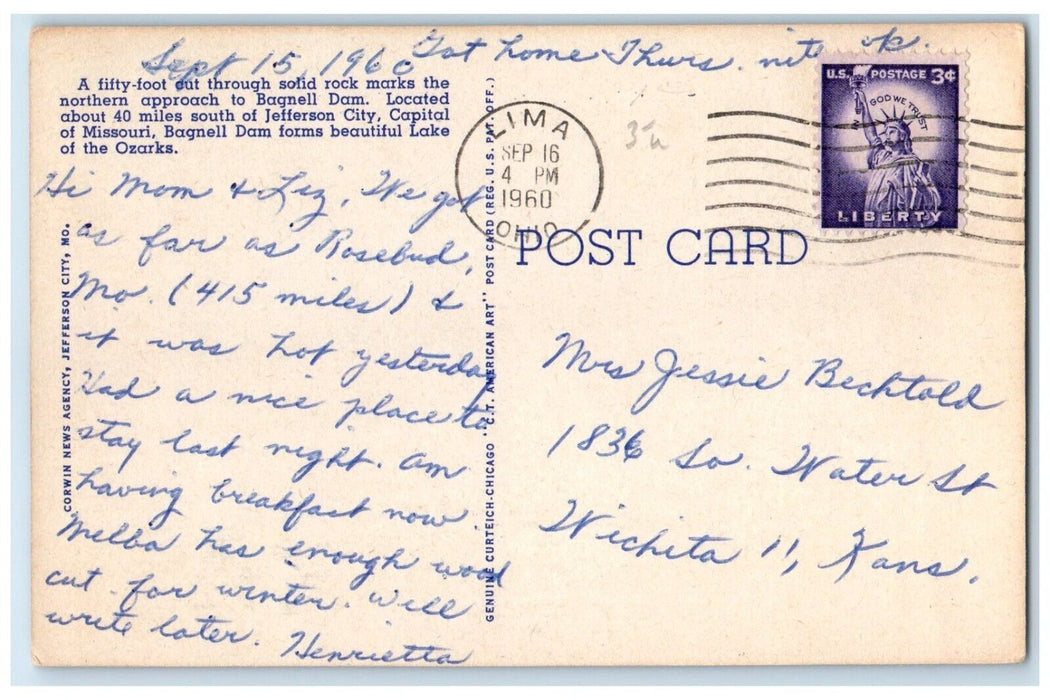 Sept 15, 1960 Got home Thurs. nite ok.
A fifty-foot cut through solid rock marks the
northern approach to Bagnell Dam. Located
about 40 miles south of Jefferson City, Capital
of Missouri, Bagnell Dam forms beautiful Lake
of the Ozarks.
Hi Mom & Liz, We got
as far as Rosebud,
Mo. (415 miles) &
it was hot yesterday
Had a nice place to
stay last night. Am
having breakfast now.
Melba has enough wood
cut for winter. Will
write later. Henrietta
CORWIN NEWS AGENCY, JEFFERSON CITY, MO.
GENUINE CURTEICH-CHICAGO "C.T. AMERICAN ART" POST CARD (REG. U.S. PAT. OFF.)
LIMA
SEP 16
4 PM
1960
OHIO
U.S. POSTAGE 3¢
IN GOD WE TRUST
LIBERTY
POST CARD
Mrs Jessie Bechtold
1836 So. Water St
Wichita 11, Kans.